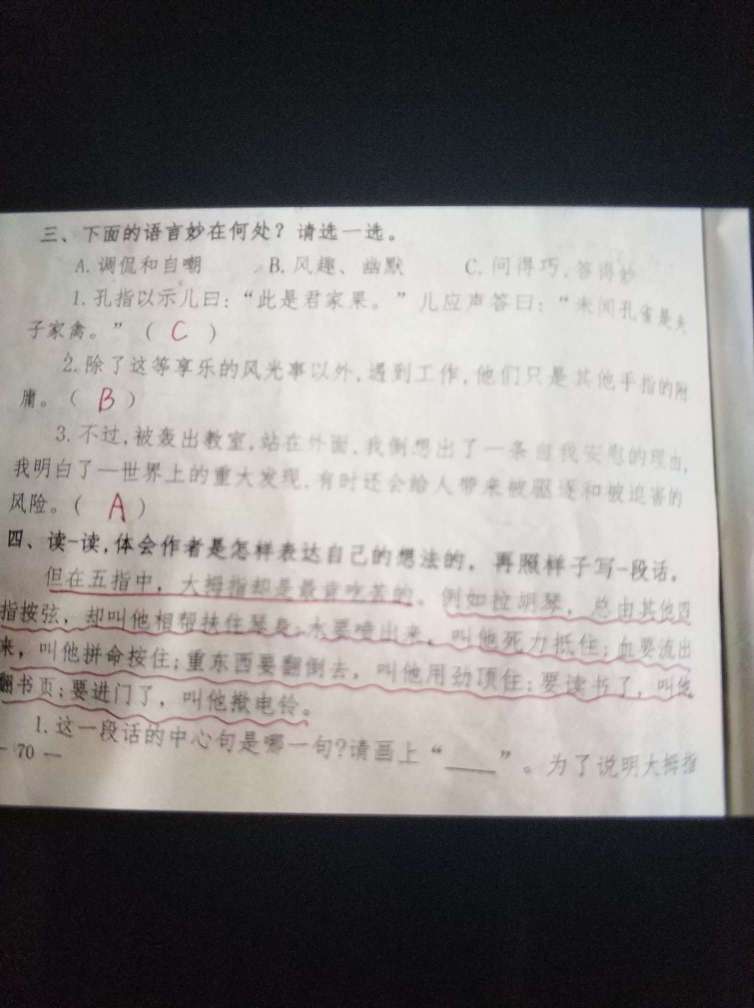 三、下面的语言妙在何处？请选一选。
A.调侃和自嘲 B.风趣、幽默 C.问得巧,答得妙
1.孔指以示儿曰：“此是君家果。”儿应声答曰：“未闻孔雀是夫
子家禽。”（ C ）
2.除了这等享乐的风光事以外,遇到工作,他们只是其他手指的附
庸。（ B ）
3.不过,被轰出教室,站在外面,我倒想出了一条自我安慰的理由,
我明白了—世界上的重大发现,有时还会给人带来被驱逐和被迫害的
风险。（ A ）
四、读一读,体会作者是怎样表达自己的想法的。再照样子写一段话。
但在五指中，大拇指却是最肯吃苦的。例如拉胡琴，总由其他四
指按弦，却叫他相帮扶住琴身;水要喷出来，叫他死力抵住;血要流出
来，叫他拼命按住;重东西要翻倒去，叫他用劲顶住;要读书了，叫他
翻书页;要进门了，叫他揿电铃。
1.这一段话的中心句是哪一句?请画上“____”。为了说明大拇指
— 70 —